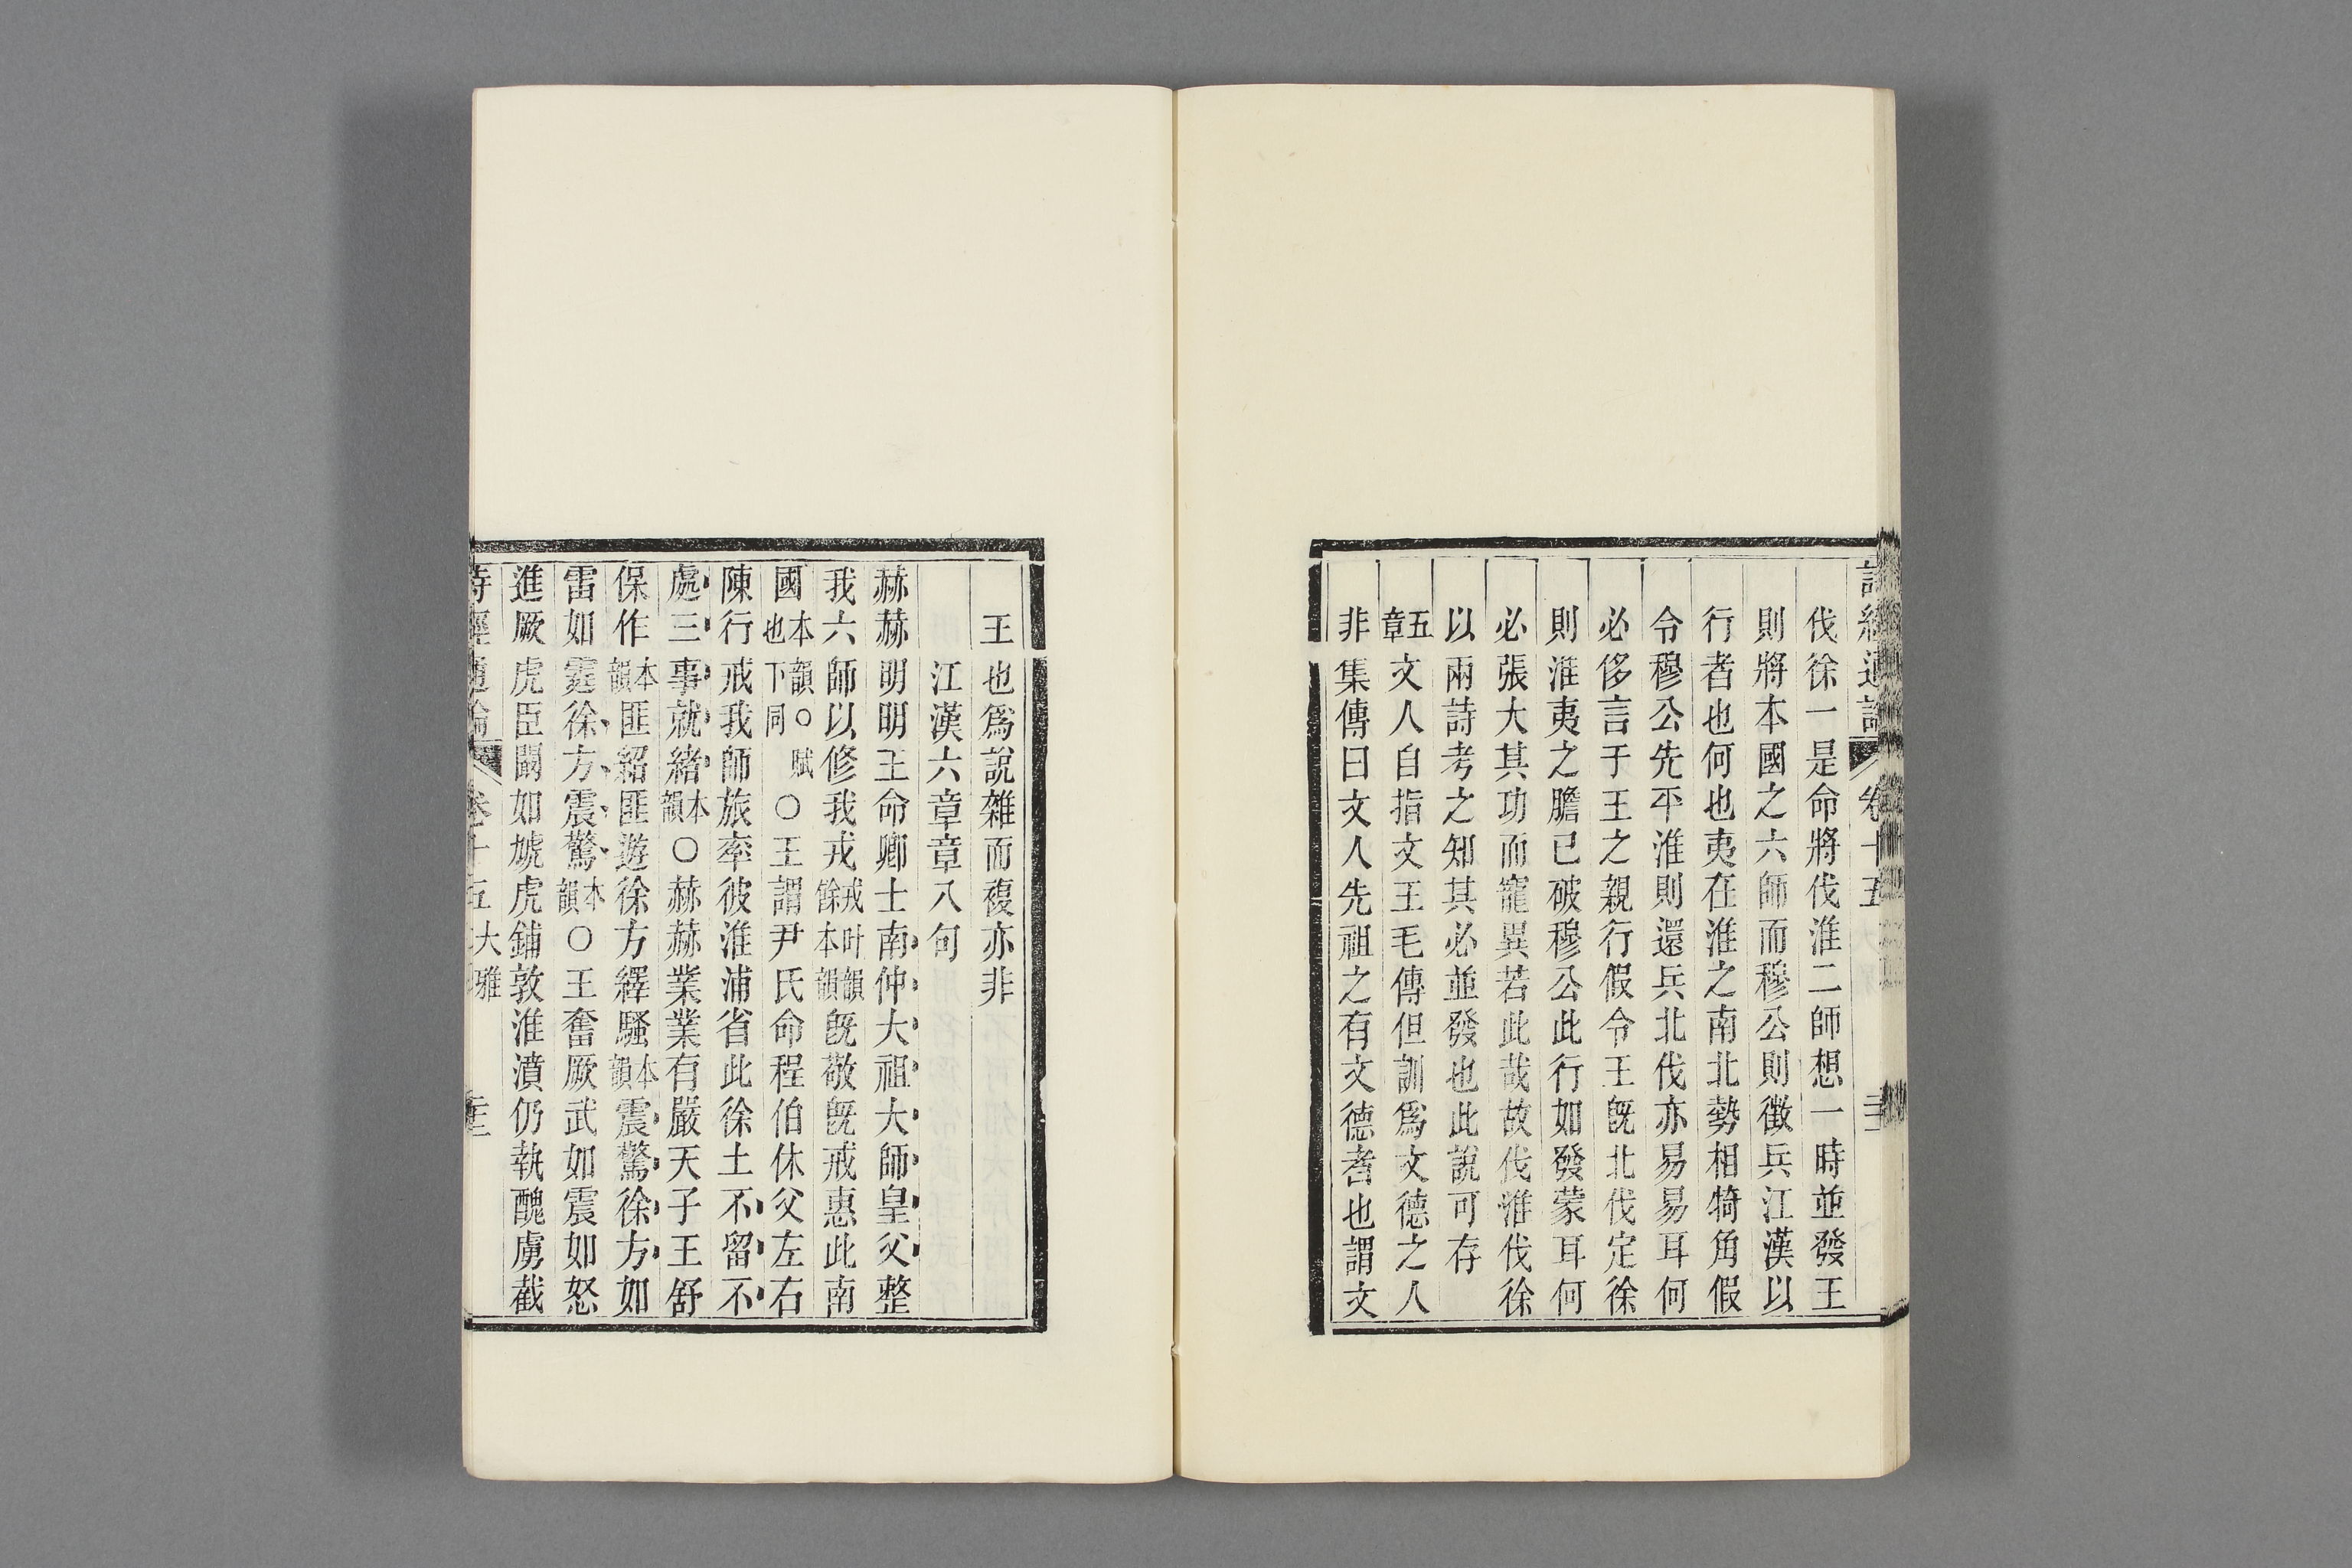 伐徐一是命將伐淮二師想一時並發王
則將本國之六師而穆公則徵兵江漢以
行者也何也夷在淮之南北勢相犄角假
令穆公先平淮則還兵北伐亦易易耳何
必侈言于王之親行假令王旣北伐定徐
則淮夷之膽已破穆公此行如發蒙耳何
必張大其功而寵異若此哉故伐淮伐徐
以兩詩考之知其必並發也此說可存
五章文人自指文王毛傳但訓爲文德之人
非集傳曰文人先祖之有文德者也謂文
王也爲說雜而複亦非
江漢六章章八句
赫赫明明王命卿士南仲大祖大師皇父整
我六師以修我戎戎叶韻餘本韻旣敬旣戒惠此南
國本韻○賦也下同○王謂尹氏命程伯休父左右
陳行戒我師旅率彼淮浦省此徐土不留不
處三事就緒本韻○赫赫業業有嚴天子王舒
保作本韻匪紹匪遊徐方繹騷本韻震驚徐方如
雷如霆徐方震驚本韻○王奮厥武如震如怒
進厥虎臣闞如虓虎鋪敦淮濆仍執醜虜截
卷十五 大雅